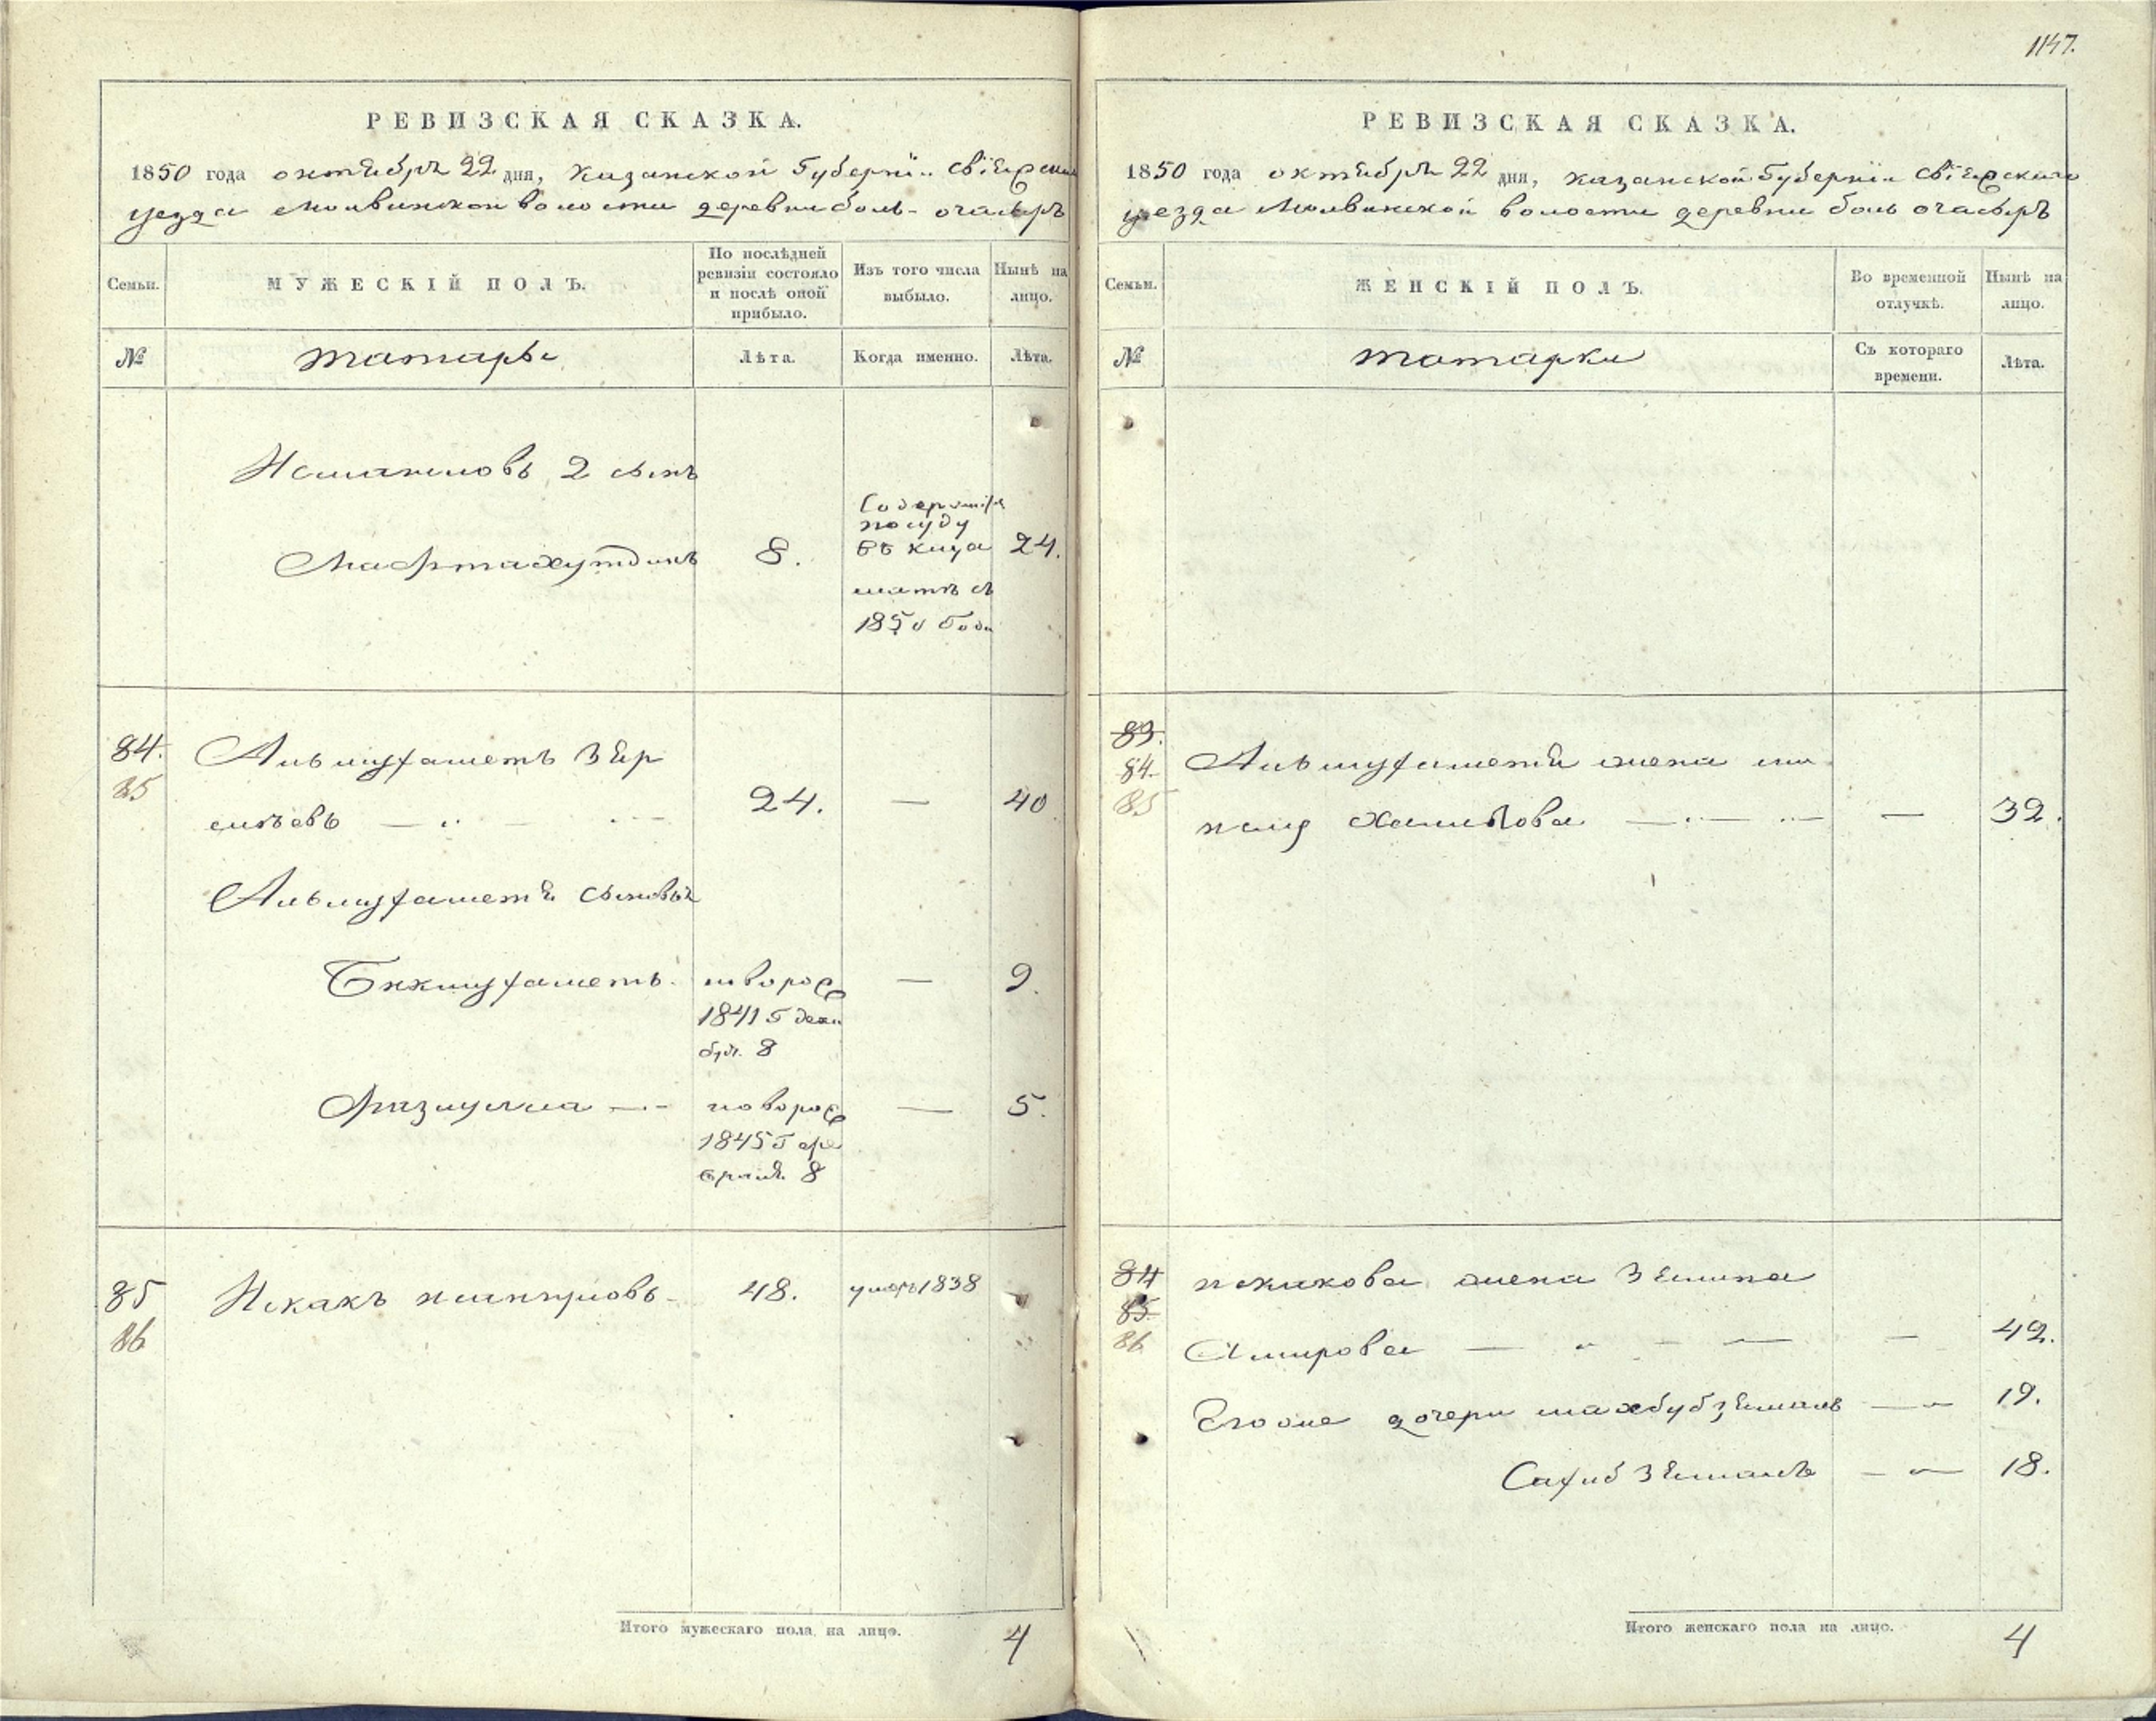 1147.
РЕВИЗСКАЯ СКАЗКА.
1850 года октября 22 дня, Казанской Губернiи Свiяжскаго
уезда Молвинской волости деревни боль- очасырь
Семьи. МУЖЕСКIЙ ПОЛЪ. По послѣдней ревизiи состояло и послѣ оной прибыло. Изъ того числа выбыло. Нынѣ на лицо.
№ татары Лѣта. Когда именно. Лѣта.
Исмаиловъ 2 сынъ
Мафтахутдинъ 8. 24.
Содержится
по суду
въ
съ
1850 Года
84. Альмухаметъ
85
24. — 40
Альмухаметя сыновья
Бикмухаметъ. новорож — 9.
1841 Г дека
бря. 8
Фазулла новорож — 5.
1845 Г
8
85 Искакъ 48. умеръ 1838
86
Итого мужескаго пола на лицо. 4
РЕВИЗСКАЯ СКАЗКА.
1850 года октября 22 дня, Казанской Губернiи Свiяжскаго
уезда Молвинской волости деревни боль очасырь
Семьи. ЖЕНСКIЙ ПОЛЪ. Во временной отлучкѣ. Нынѣ на лицо.
№ татарки Съ котораго времени. Лѣта.
83.
84. Альмухаметя жена
85 — 32.
84 искакова жена Зямина
85.
86 Амирова — 42.
Егоже дочери махбубзямаль — 19.
Сахибзямаль — 18.
Итого женскаго пола на лицо. 4